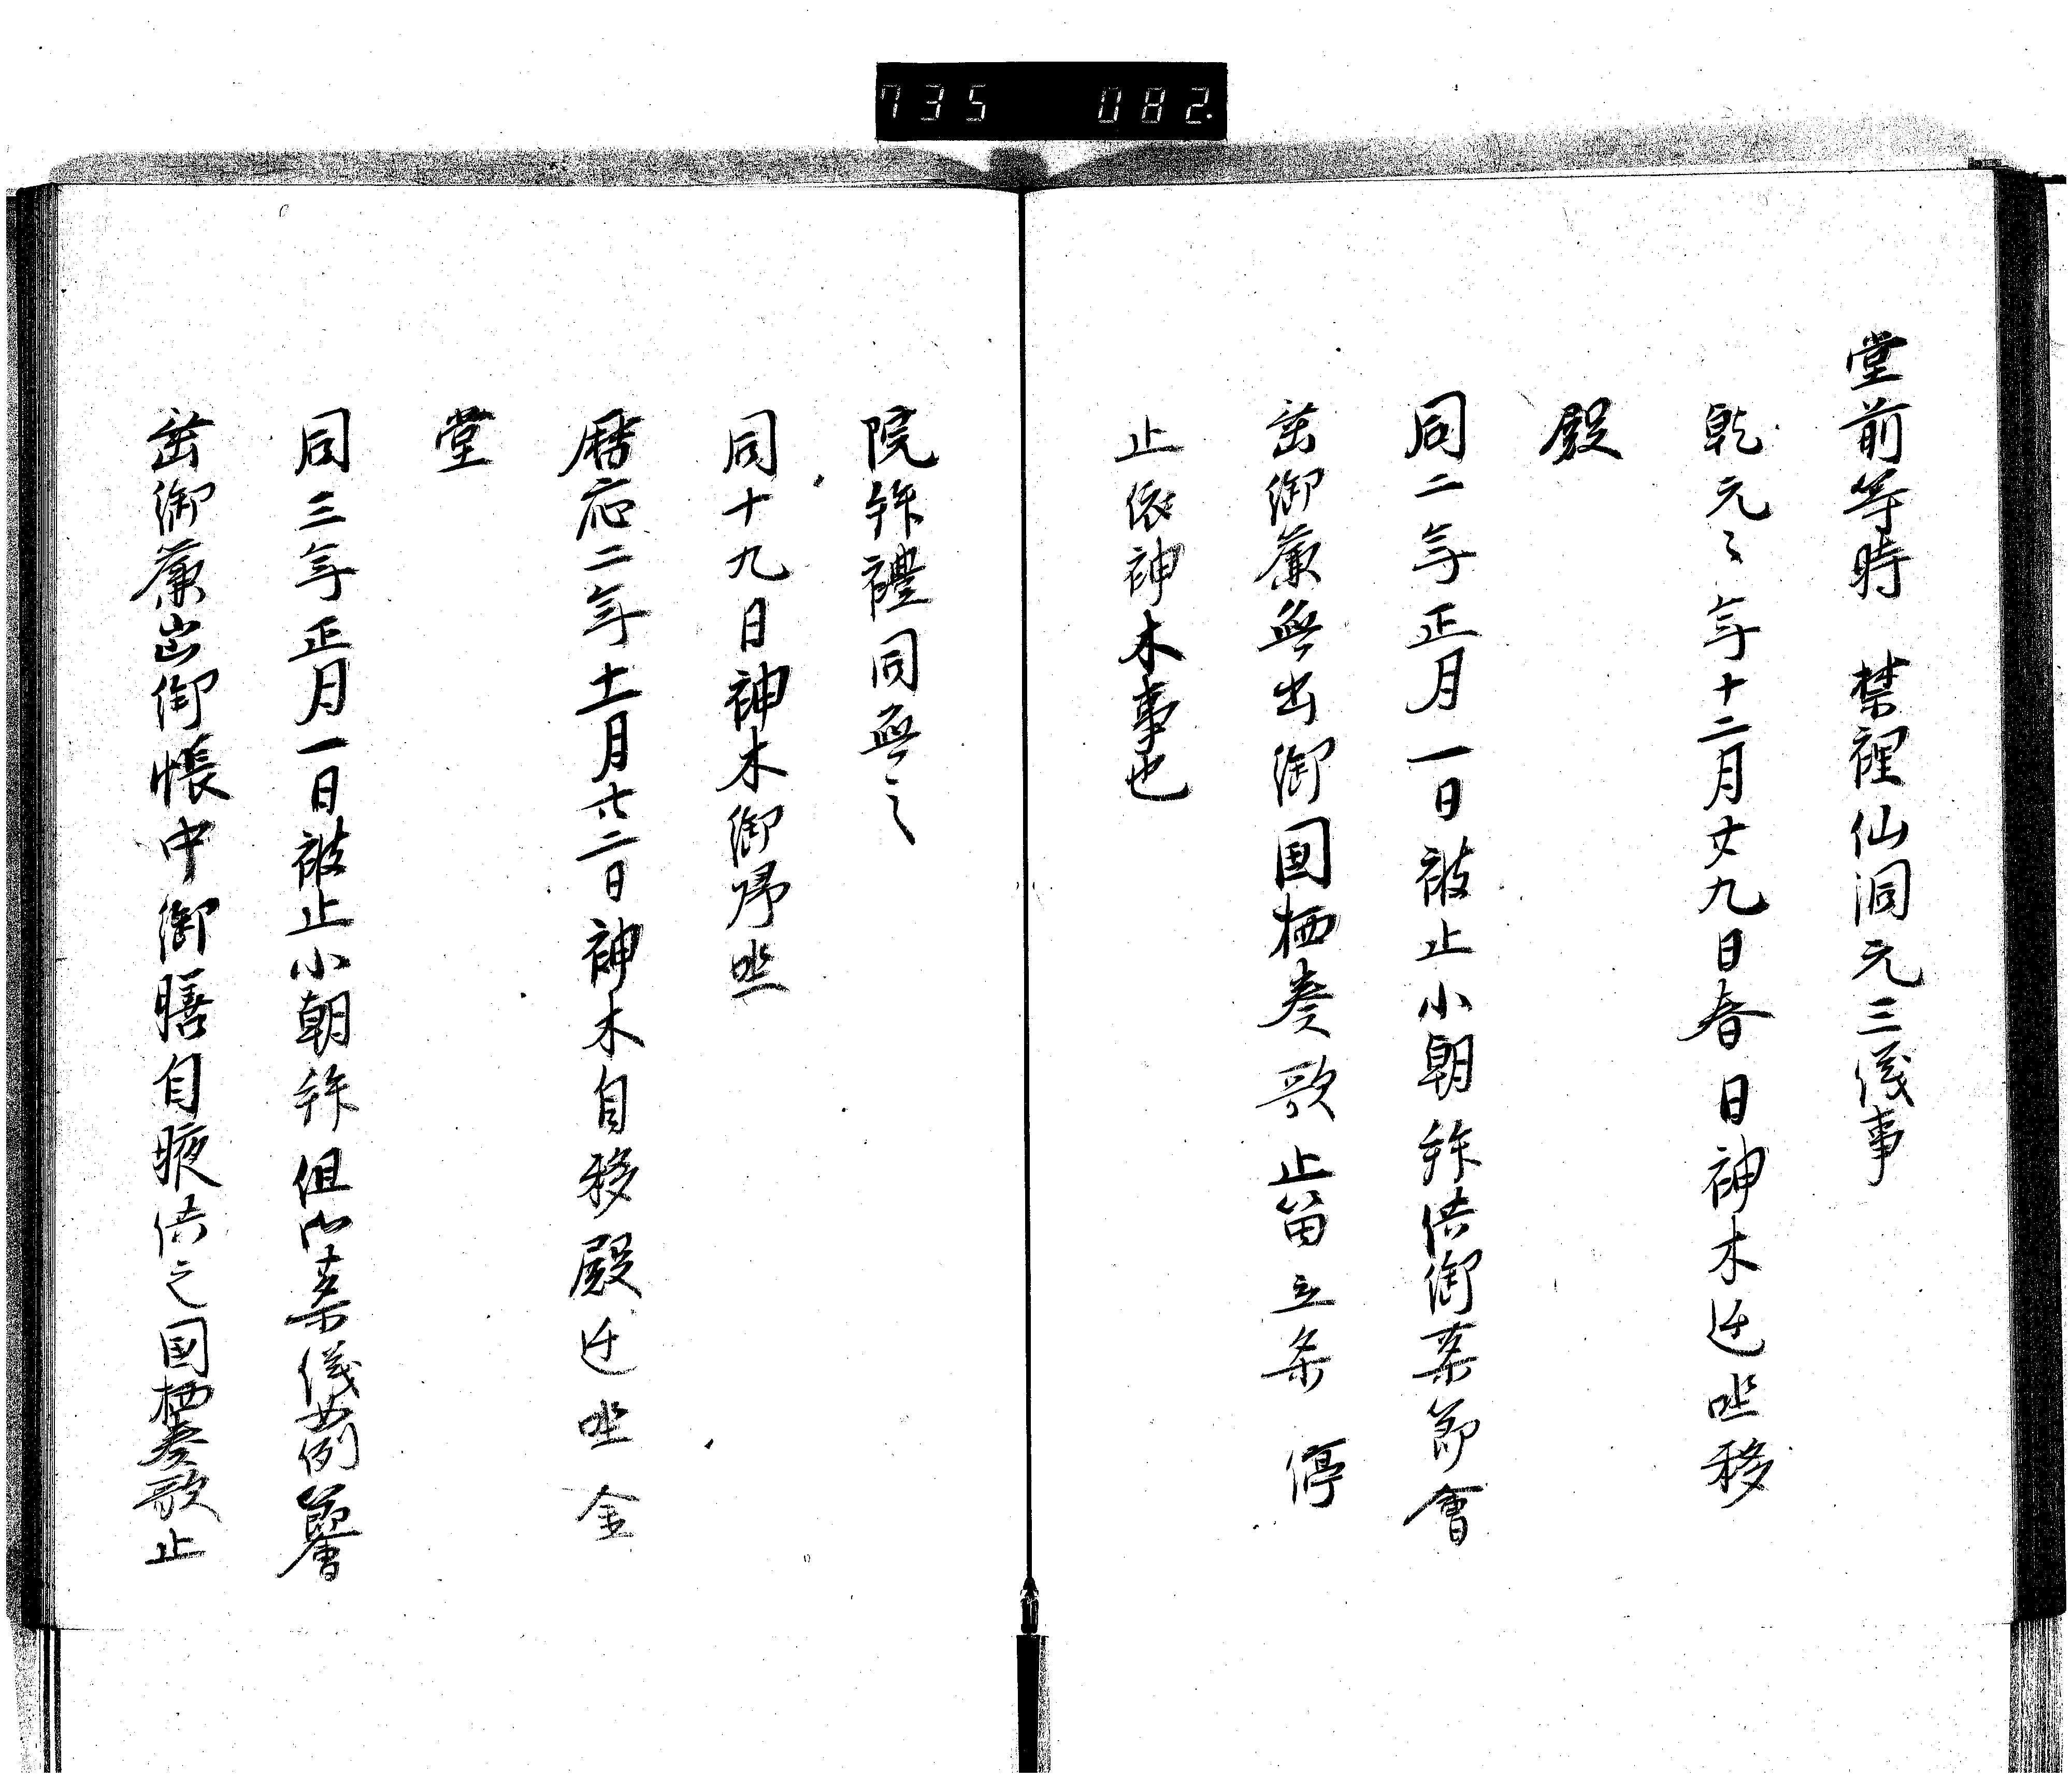 735 082.
堂前等時 禁裡仙洞元三儀事
乾元々年十二月廿九日春日神木迁坐移
殿
同二年正月一日被止小朝拜供御薬節會
垂御簾無出御国栖奏歌止笛立楽 停
止依神木事也
院拜禮同無之
同十九日神木御帰坐
暦応二年十二月廿二日神木自移殿迁坐金
堂
同三年正月一日被止小朝拜但御薬儀如例節會
垂御簾出御帳中御膳自腋供之国栖奏歌止